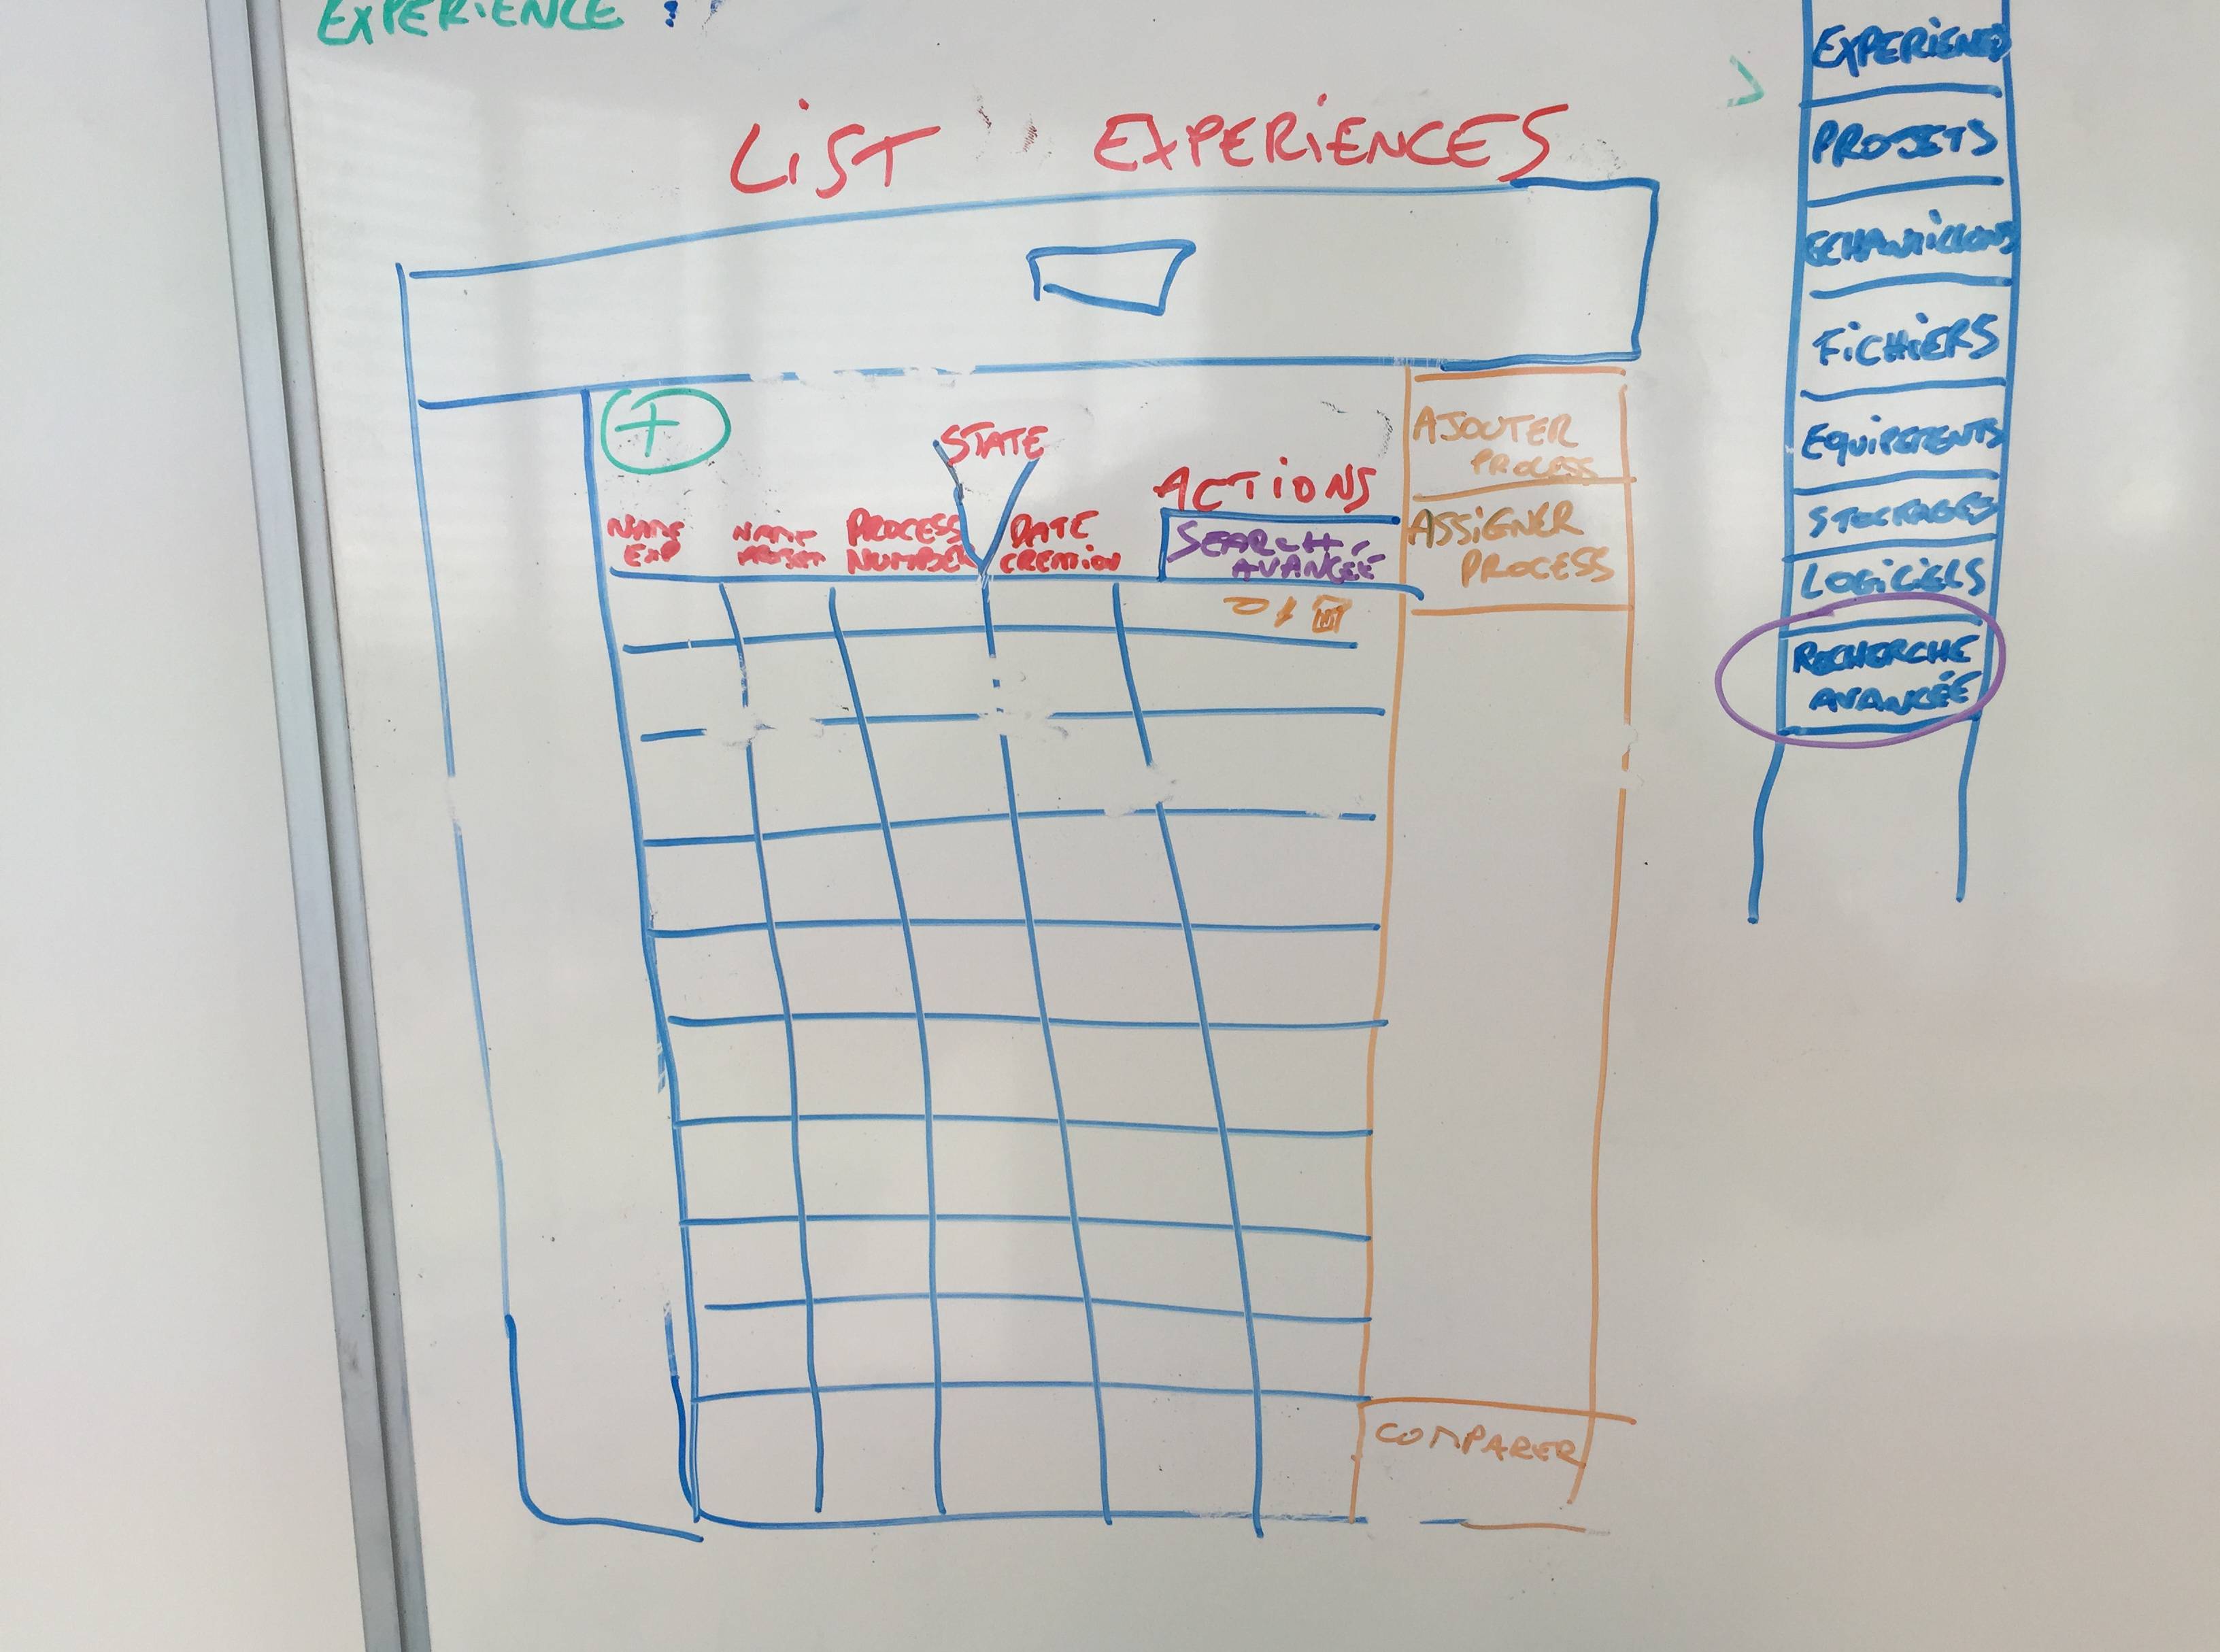 EXPERIENCE :
LIST EXPERIENCES
+
STATE
ACTIONS
NAME
EXP
NAME
PROJET
PROCESS
NUMBER
DATE
CREATION
SEARCH
AVANCÉE
AJOUTER
PROCESS
ASSIGNER
PROCESS
COMPARER
EXPERIENCES
PROJETS
ECHANTILLONS
FICHIERS
EQUIPEMENTS
STOCKAGES
LOGICIELS
RECHERCHE
AVANCÉE